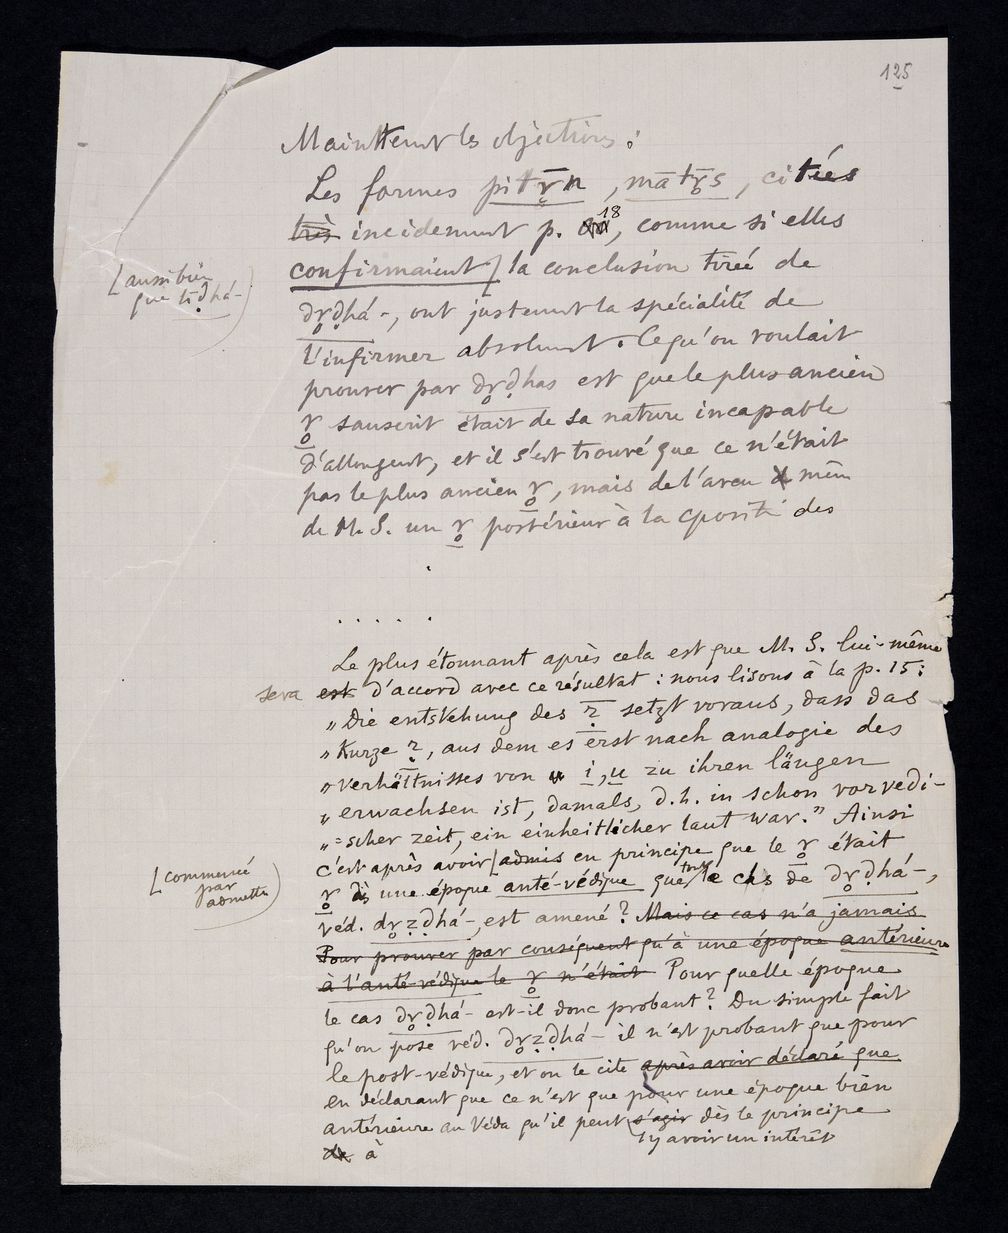 125
Maintenant les objections :
Les formes pitr̥̄n, mātr̥̄s, citées
très incidemment p. 18, comme si elles
confirmaient [ la conclusion tirée de
[aussi bien
que līḍhá-)
dr̥ḍhá-, ont justement la spécialité de
l'infirmer absolument. Ce qu'on voulait
prouver par dr̥ḍhas est que le plus ancien
r̥ sanscrit était de sa nature incapable
d'allongemt, et il s'est trouvé que ce n'était
pas le plus ancien r̥, mais de l'aveu même
de M. S. un r̥ postérieur à la des
. . . . .
Le plus étonnant après cela est que M. S. lui-même
sera est d'accord avec ce résultat : nous lisons à la p. 15 :
„Die entstehung des r̥̄ setzt voraus, dass das
„Kurze r̥, aus dem es erst nach analogie des
„verhältnisses von i, u zu ihren längen
„erwachsen ist, damals, d. h. in schon vorvedi-
„=scher zeit, ein einheitlicher laut war.” Ainsi
c'est après avoir [admis en principe que le r̥ était
[commencé
par
admettre)
r̥ dès une époque anté-védique que tout le cas de dr̥ḍhá-,
véd. dr̥ẓḍhá-, est amené ? Mais ce cas n'a jamais
Pour prouver par conséquent qu'à une époque antérieure
à l'anté-védique le r̥ n'était Pour quelle époque
le cas dr̥ḍhá- est-il donc probant ? Du simple fait
qu'on pose véd. dr̥ẓḍhá- il n'est probant que pour
le post-védique, et on le cite après avoir déclaré que
en déclarant que ce n'est que pour une époque bien
antérieure au Véda qu'il peut s'agir dès le principe
y avoir un intérêt
de à